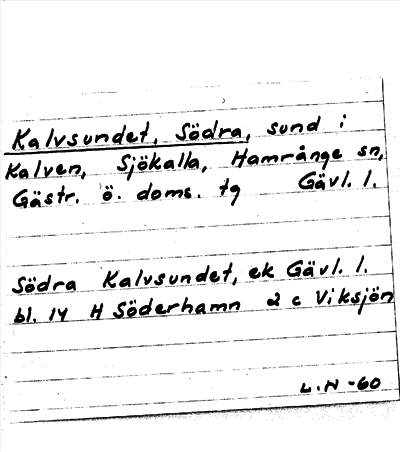 Kalvsundet, Södra, sund i
Kalven, Sjökalla, Hamrånge sn,
Gästr. ö. doms. tg Gävl. l.
Södra Kalvsundet, ek Gävl. l.
bl. 14 H Söderhamn 2 c Viksjön
L.N -60